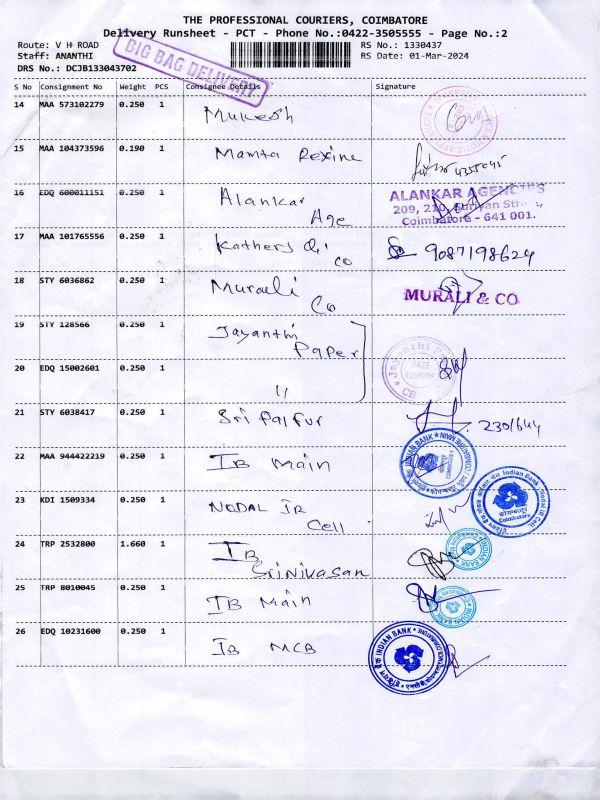 THE PROFESSIONAL COURIERS, COIMBATORE
Delivery Runsheet - PCT - Phone No.:0422-3505555 - Page No.:2
Route: V H ROAD
Staff: ANANTHI
DRS No.: DCJB133043702
BIG BAG DELIVERY
RS No.: 1330437
RS Date: 01-Mar-2024
S No Consignment No Weight PCS Consignee Details Signature
14 MAA 573102279 0.250 1 Mukesh
15 MAA 104373596 0.190 1 Mamta Rexine
16 EDQ 600011151 0.250 1 Alankar Age
ALANKAR AGENCIES
209, 210, Suriyan Street
Coimbatore - 641 001.
17 MAA 101765556 0.250 1 Co 9087198624
18 STY 6036862 0.250 1 Murali Co
MURALI & CO
19 STY 128566 0.250 1 Jayanthi Paper
20 EDQ 15002601 0.250 1 "
21 STY 6038417 0.250 1 Sri 2301644
22 MAA 944422219 0.250 1 IB Main
INDIAN BANK
23 KDI 1509334 0.250 1 NODAL IB Cell
Indian Bank-Nodal IR Cell
Coimbatore
24 TRP 2532800 1.660 1 IB Srinivasan
INDIAN BANK
25 TRP 8010045 0.250 1 IB Main
26 EDQ 10231600 0.250 1 IB MCB
INDIAN BANK